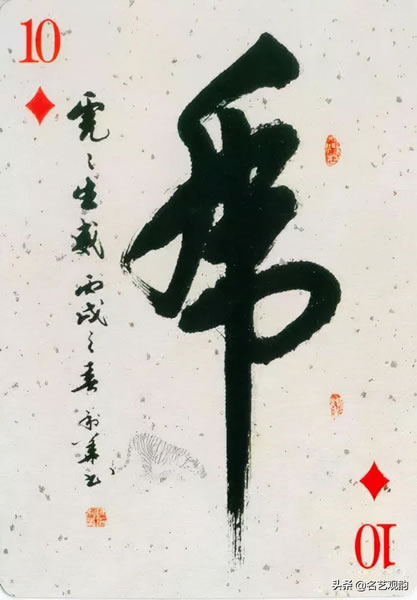 10
虎
虎〻生威 丙戌之春
10
头条 @名艺观韵